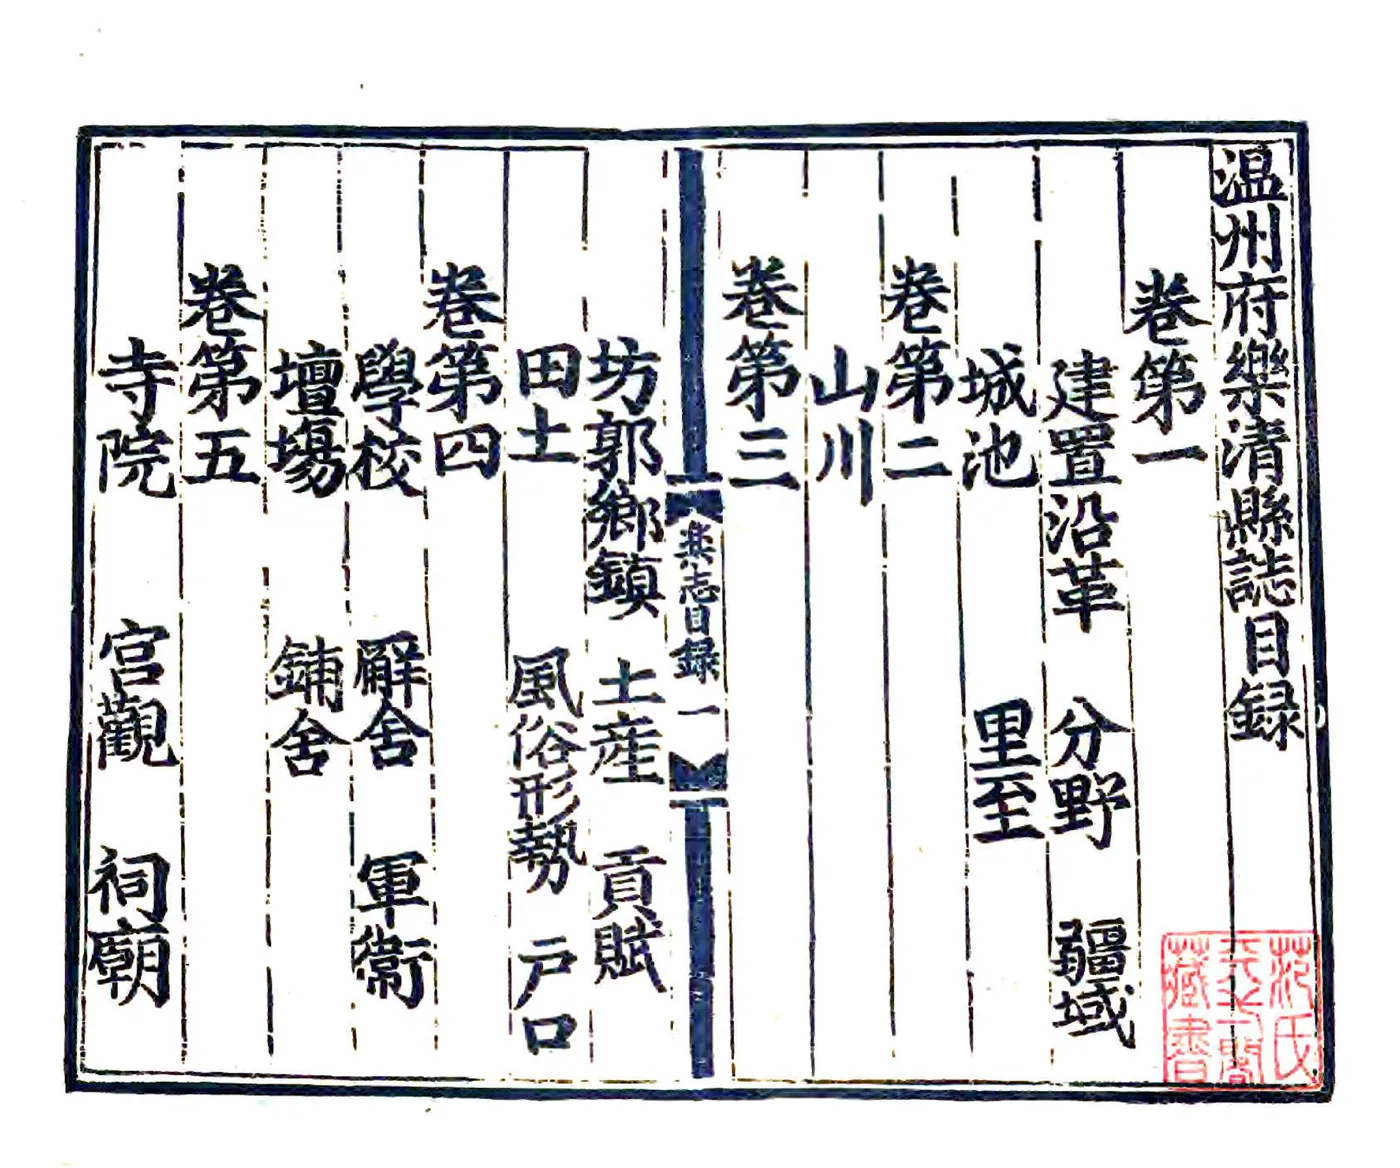 温州府樂清縣誌目録
卷第一
建置沿革 分野 疆域
城池 里至
卷第二
山川
卷第三
樂志目録 一
坊郭鄉鎮 土産 貢賦
田土 風俗形勢 户口
卷第四
學校 廨舍 軍衞
壇場 鋪舍
卷第五
寺院 宫觀 祠廟
范氏天一閣藏書